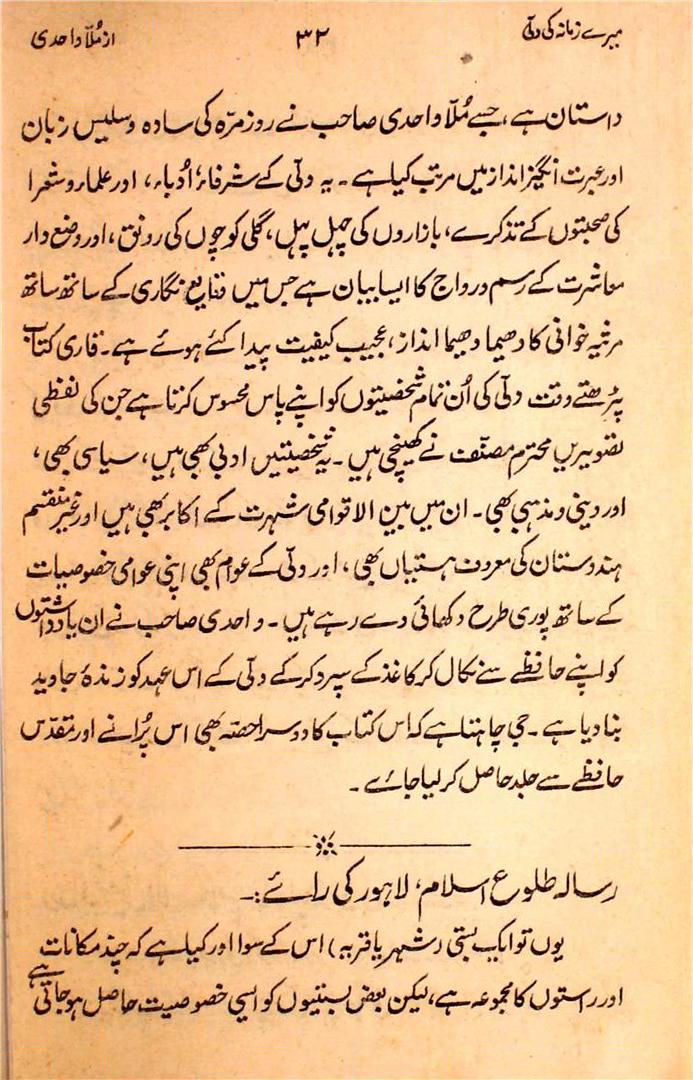 میرے زمانہ کی دلّی
۳۲
از مُلّا واحدی
داستان ہے، جسے مُلّا واحدی صاحب نے روزمرّہ کی سادہ وسلیس زبان
اور عبرت انگیز انداز میں مرتب کیا ہے۔ یہ دلّی کے شرفاء، اُدباء، اور علماء و شعرا
کی صحبتوں کے تذکرے، بازاروں کی چہل پہل، گلی کوچوں کی رونق، اور وضع دار
معاشرت کے رسم و رواج کا ایسا بیان ہے جس میں وقایع نگاری کے ساتھ ساتھ
مرثیہ خوانی کا دھیما دھیما انداز، عجیب کیفیت پیدا کئے ہوئے ہے۔ قاری کتاب
پڑھتے وقت دلّی کی اُن تمام شخصیتوں کو اپنے پاس محسوس کرتا ہے جن کی لفظی
تصویریں محترم مصنّف نے کھینچی ہیں۔ یہ شخصیتیں ادبی بھی ہیں، سیاسی بھی،
اور دینی و مذہبی بھی۔ ان میں بین الاقوامی شہرت کے اکابر بھی ہیں اور غیر منقسم
ہندوستان کی معروف ہستیاں بھی، اور دلّی کے عوام بھی اپنی عوامی خصوصیات
کے ساتھ پوری طرح دکھائی دے رہے ہیں۔ واحدی صاحب نے ان یادداشتوں
کو اپنے حافظے سے نکال کر کاغذ کے سپرد کر کے دلّی کے اس عہد کو زندۂ جاوید
بنا دیا ہے۔ جی چاہتا ہے کہ اس کتاب کا دوسرا حصّہ بھی اس پُرانے اور مقدّس
حافظے سے جلد حاصل کر لیا جائے۔
رسالہ طلوع اسلام، لاہور کی رائے:۔
یوں تو ایک بستی (شہر یا قریہ) اس کے سوا اور کیا ہے کہ چند مکانات
اور راستوں کا مجموعہ ہے، لیکن بعض بستیوں کو ایسی خصوصیت حاصل ہو جاتی ہے